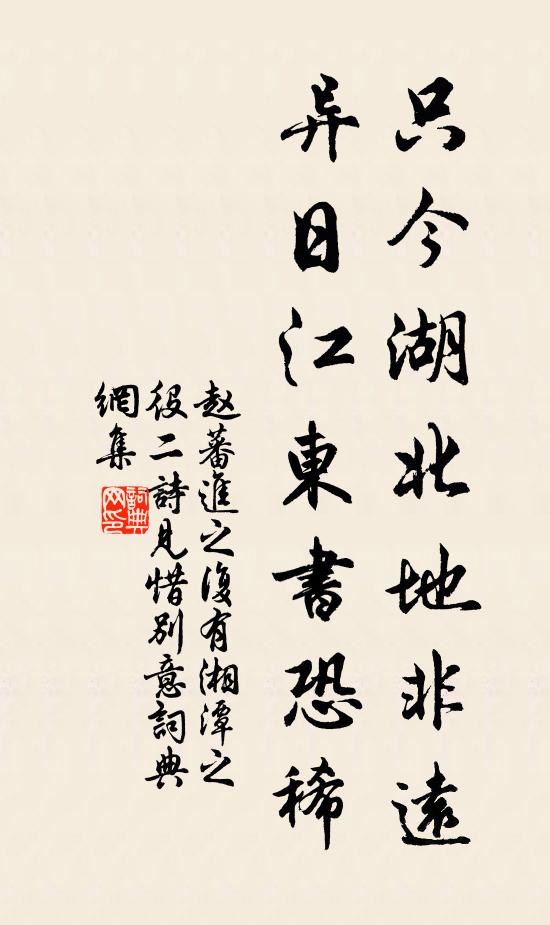 只今湖北地非遠
异日江東書恐稀
赵蕃進之復有湘潭之
役二詩見惜别意詞典
網集
詞典
网印